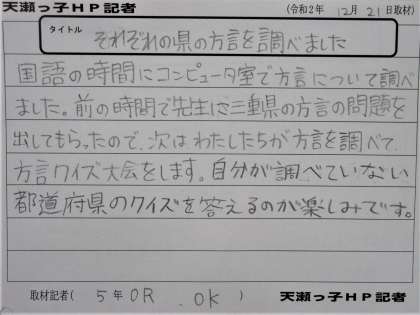 天瀬っ子HP記者
(令和2年 12月 21日取材)
タイトル
それぞれの県の方言を調べました
国語の時間にコンピュータ室で方言について調べ
ました。前の時間で先生に三重県の方言の問題を
出してもらったので、次はわたしたちが方言を調べて
方言クイズ大会をします。自分が調べていない
都道府県のクイズを答えるのが楽しみです。
取材記者( 5年 OR . OK )
天瀬っ子HP記者